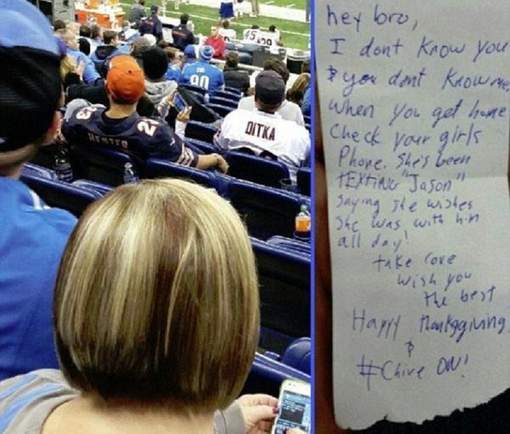 45
90
HESTER
23
DITKA
hey bro,
I dont know you
& you dont know me
when you get home
Check your girls
Phone. She's been
TEXTING "Jason"
Saying she wishes
She was with him
all day!
take care
wish you
the best
Happy Thanksgiving
&
#Chive ON!